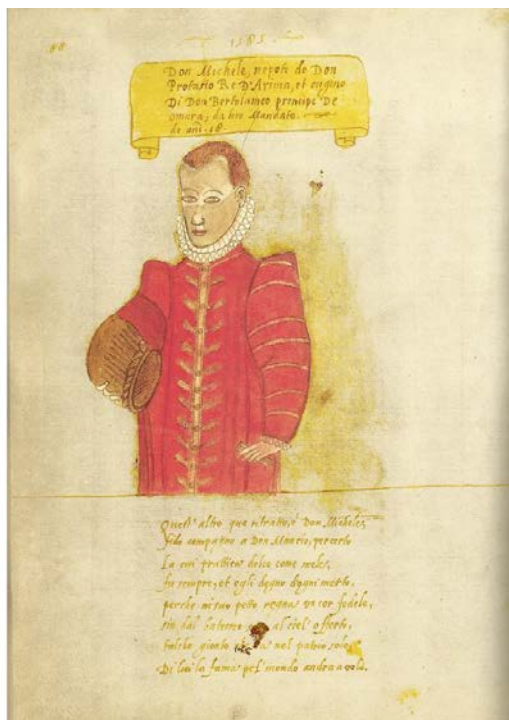 88
1585
Don Michele, nepote de Don
Protasio Re D'Arima, et cugino
Di Don Bertolameo prencipe De
omura, da loro Mandato.
de ani .18.
Quest' altro que ritratto, é Don Michele,
fido compagno a Don Mancio, per certo
La cui prattica dolce come mele,
fu sempre, et egli degno d'ogni merto,
perche nel suo petto regna un cor fedele,
sin dal al ciel' offerto,
talche gionto nel patrio
Di lui la fama pel mondo andra a volo.